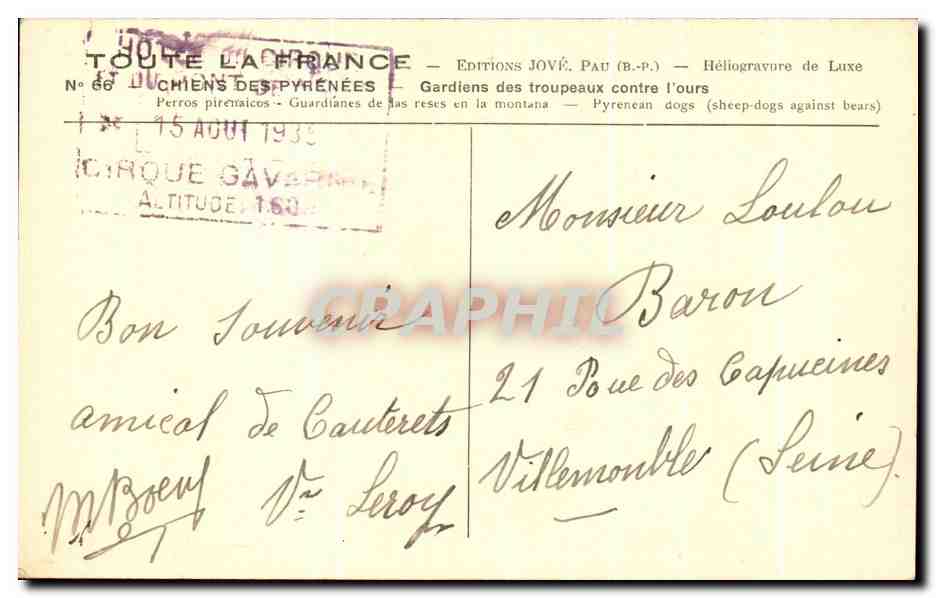 TOUTE LA FRANCE — EDITIONS JOVÉ, PAU (B.-P.) — Héliogravure de Luxe
N° 66 — CHIENS DES PYRÉNÉES — Gardiens des troupeaux contre l'ours
Perros pirenaicos - Guardianes de las reses en la montana — Pyrenean dogs (sheep-dogs against bears)
HOTEL DU CIRQUE
ET DU MONT
15 AOUT 193
CIRQUE GAVARNIE
ALTITUDE, 160
Bon Souvenir
amical de Cauterets
Vve Leroy
Monsieur Loulou
Baron
21 Rue des Capucines
Villemonble (Seine).
CRAPHIL